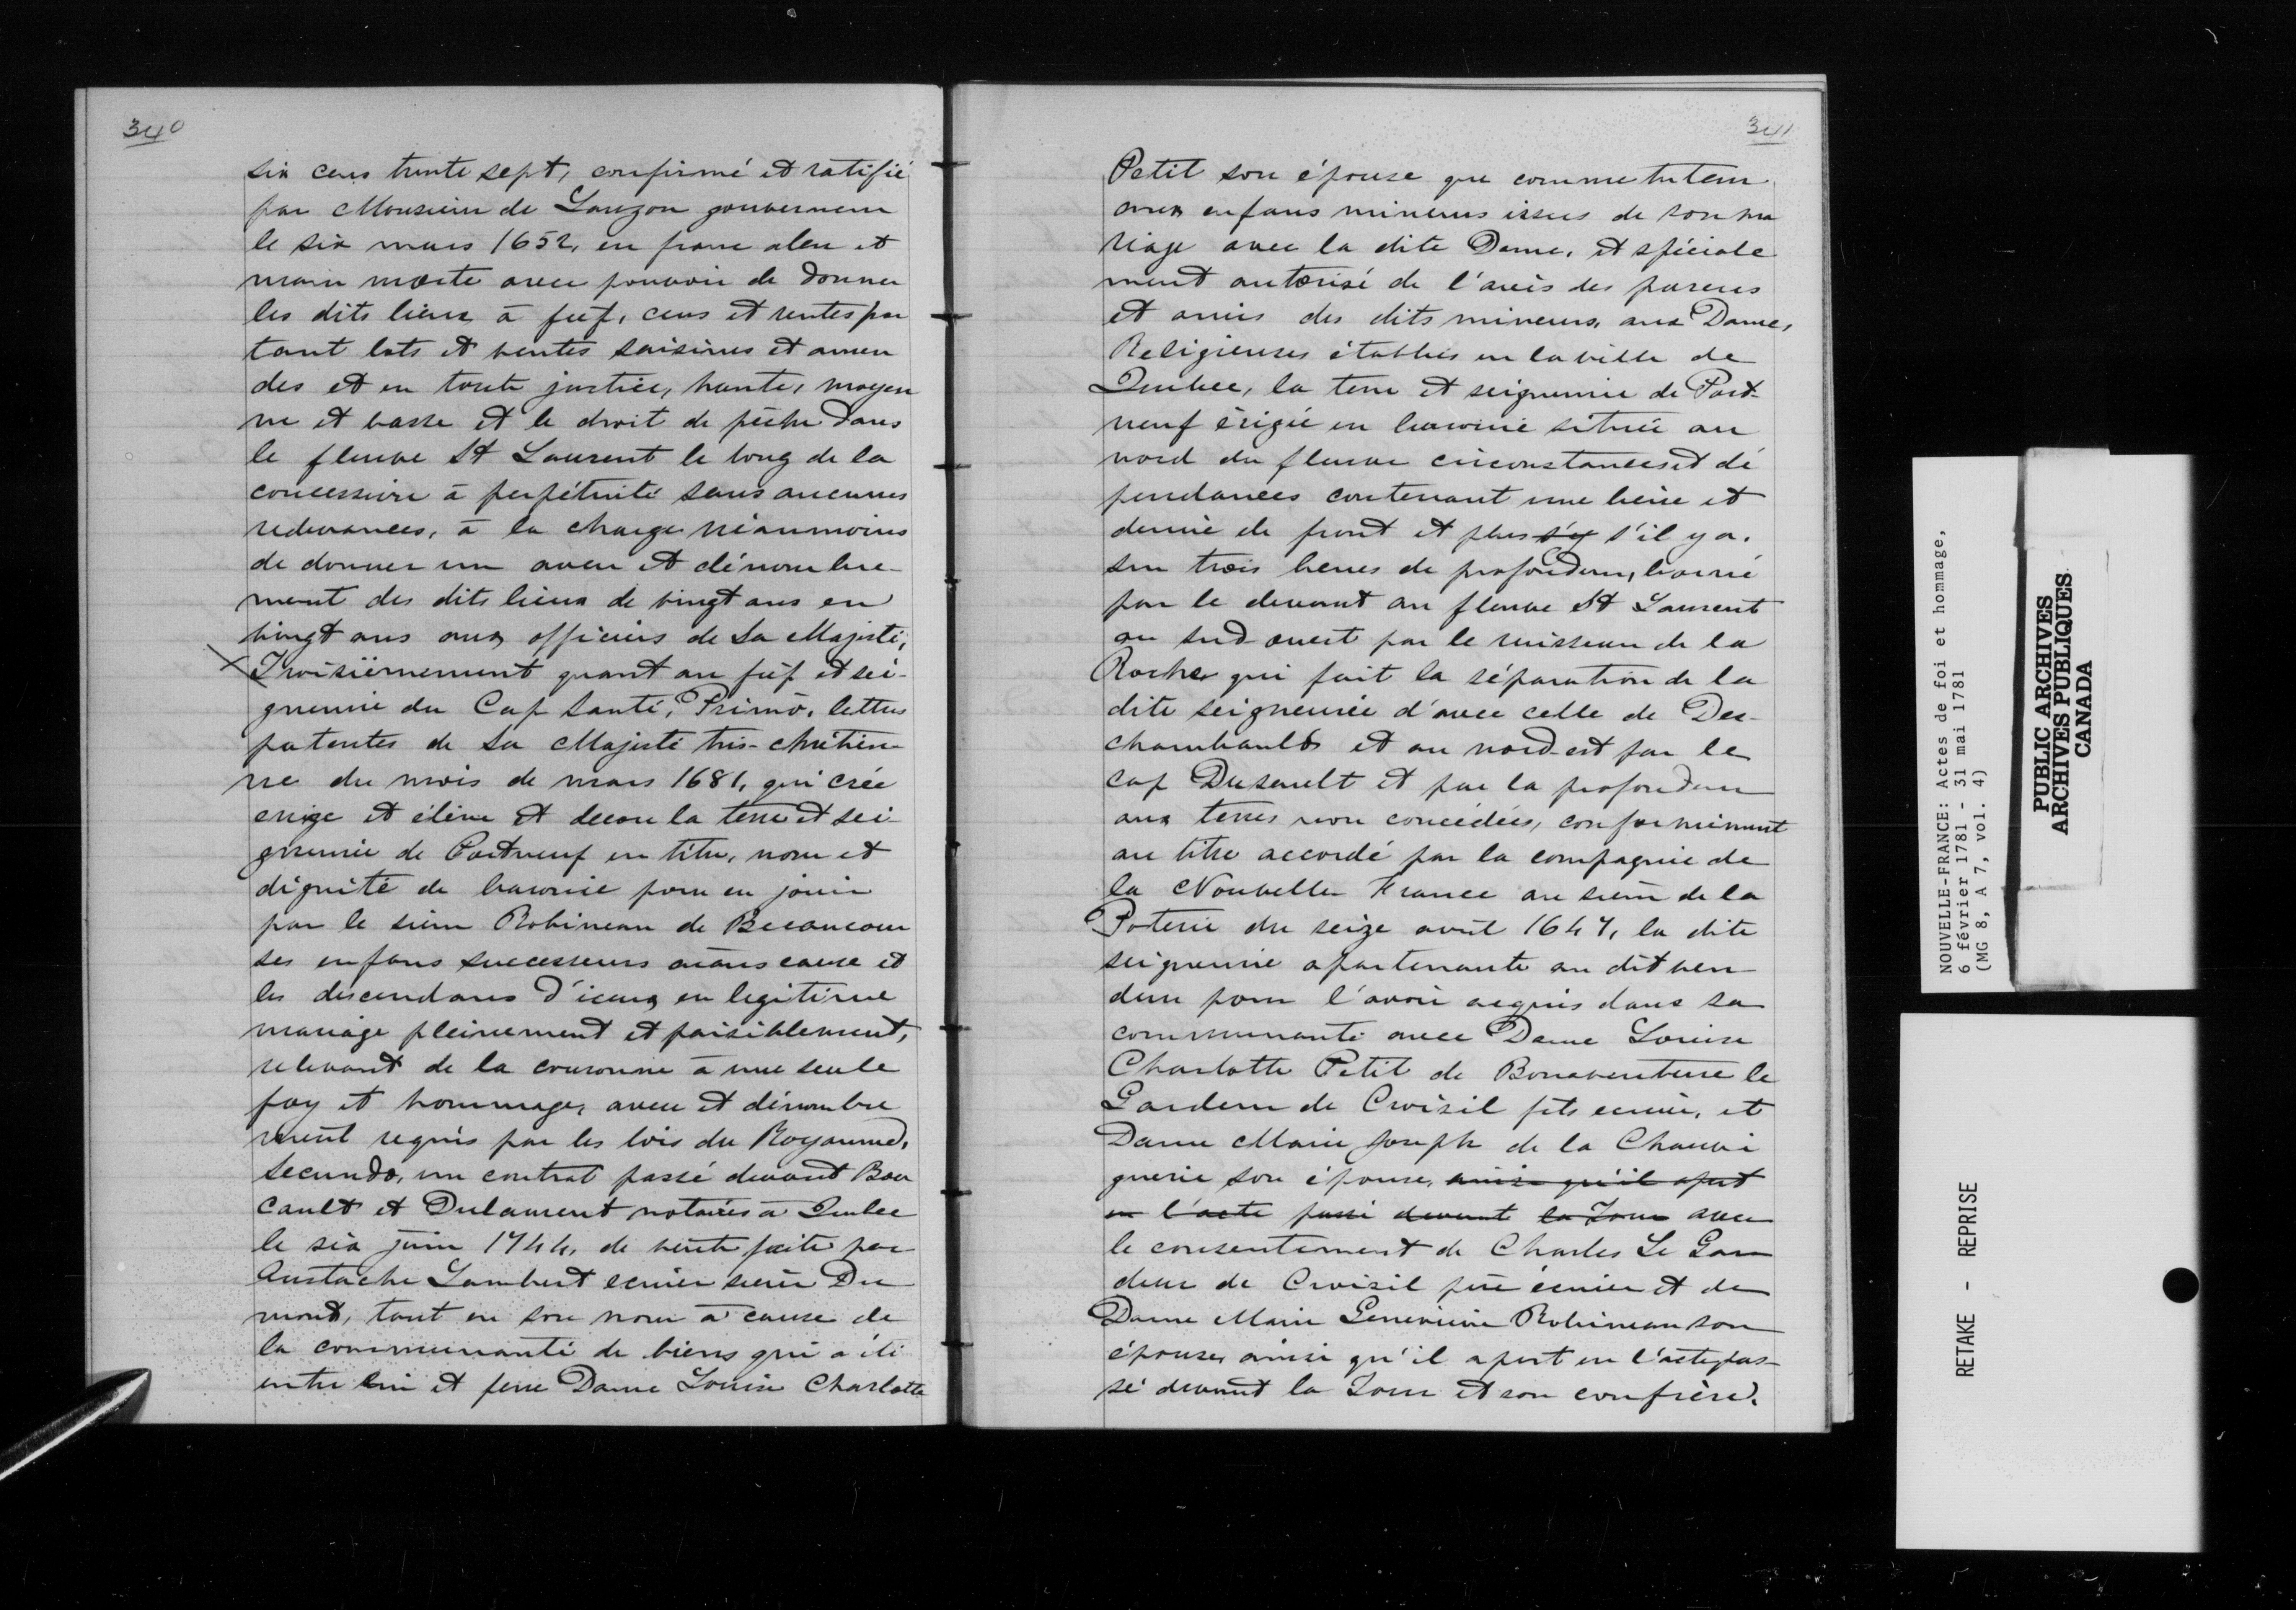 340
six cens trente sept, confirmé et ratifié
par Monsieur de Lauzon gouverneur
le six mars 1652, en franc aleu et
main morte avec pouvoir de donner
les dits lieux à fief, cens et rentes por
tant lots et ventes saisines et amen
des et en toute justice, haute, moyen
ne et basse et le droit de pêche dans
le fleuve St Laurent le long de la
concession à perpétuité sans aucunes
redevances, à la charge néaumoins
de donner un aveu et dénombre-
ment des dits lieux de vingt ans en
vingt ans aux officiers de Sa Majesté,
Troisièmement quant au fief et sei-
gneurie du Cap Santé, Primo, lettres
patentes de Sa Majesté très-chrétien-
ne du mois de mars 1681, qui crée
erige et élève et decore la terre et sei-
gneurie de Portneuf en titre, nom et
dignité de baronie pour en jouir
par le sieur Robineau de Becancour
ses enfans successeurs aians cause et
les descendans d'iceux en legitime
mariage pleinement et paisiblement,
relevant de la couronne à une seule
foy et hommage, aveu et dénombre
ment requis par les lois du Royaume,
Secundo, un contrat passé devant Bou
cault et Dulaurent notaires à Quebec
le six juin 1744, de vente faite par
Eustache Lambert ecuier sieur Du
mont, tant en son nom à cause de
la communauté de biens qui a été
entre lui et feue Dame Louise Charlotte
341
Petit son épouse que comme tuteur
aux enfans mineurs issus de son ma
riage avec la dite Dame, et spéciale
ment autorisé de l'avis des parens
et amis des dits mineurs, aux Dames
Religieuses établies en la ville de
Quebec, la terre et seigneurie de Port-
neuf érigée en baronie située au
nord du fleuve circonstances et dé
pendances contenant une lieue et
demie de front et plus s'y s'il y a.
sur trois lieues de profondeur, borné
par le devant au fleuve St Laurent
au sud ouest par le ruisseau de la
Roche qui fait la séparation de la
dite seigneurie d'avec celle de Des-
chambault et au nord-est par le
cap Dusault et par la profondeur
aux terres non concédées, conformément
au titre accordé par la compagnie de
la Nouvelle France au sieur de la
Poterie du seize avril 1647, la dite
seigneurie apartenante au dit ven
deur pour l'avoir acquis dans sa
communauté avec Dame Louise
Charlotte Petit de Bonaventure le
Gardeur de Croisil fils ecuier, et
Dame Marie Joseph de la Chauvi
gnerie son épouse, ainsi qu'il apert
en l'acte passé devant la Tour avec
le consentement de Charles Le Gar
deur de Croisil père écuier et de
Dame Marie Geneviève Robineau son
épouse, ainsi qu'il apert en l'acte pas-
sé devant la Tour et son confrère.
NOUVELLE-FRANCE: Actes de foi et hommage,
6 février 1781 - 31 mai 1781
(MG 8, A 7, vol. 4)
PUBLIC ARCHIVES
ARCHIVES PUBLIQUES
CANADA
RETAKE - REPRISE